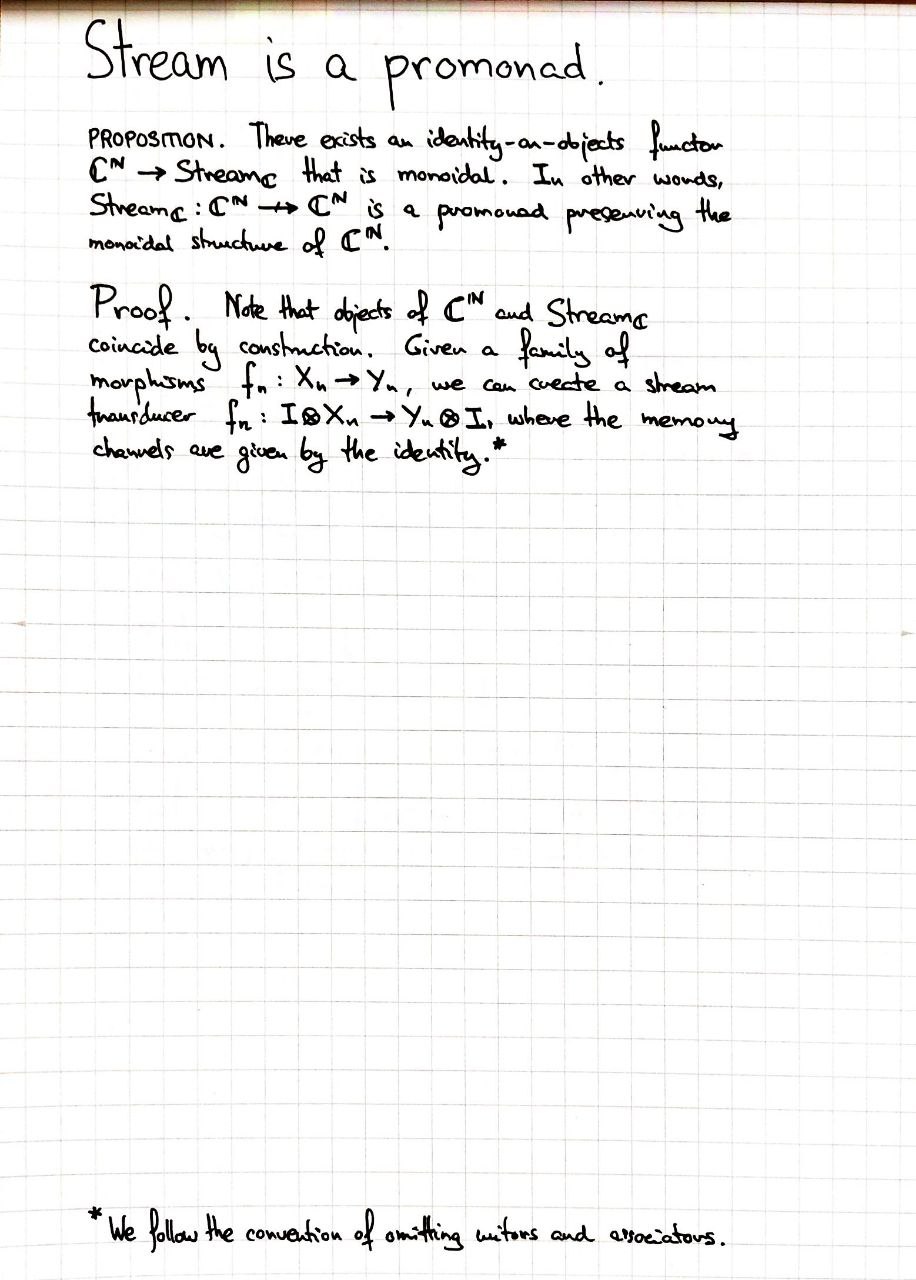 Stream is a promonad.
PROPOSITION. There exists an identity-on-objects functor
ℂᴺ → Stream_ℂ that is monoidal. In other words,
Stream_ℂ : ℂᴺ ⇸ ℂᴺ is a promonad preserving the
monoidal structure of ℂᴺ.
Proof. Note that objects of ℂᴺ and Stream_ℂ
coincide by construction. Given a family of
morphisms fₙ : Xₙ → Yₙ, we can create a stream
transducer fₙ : I⊗Xₙ → Yₙ⊗I, where the memory
channels are given by the identity.*
*We follow the convention of omitting unitors and associators.